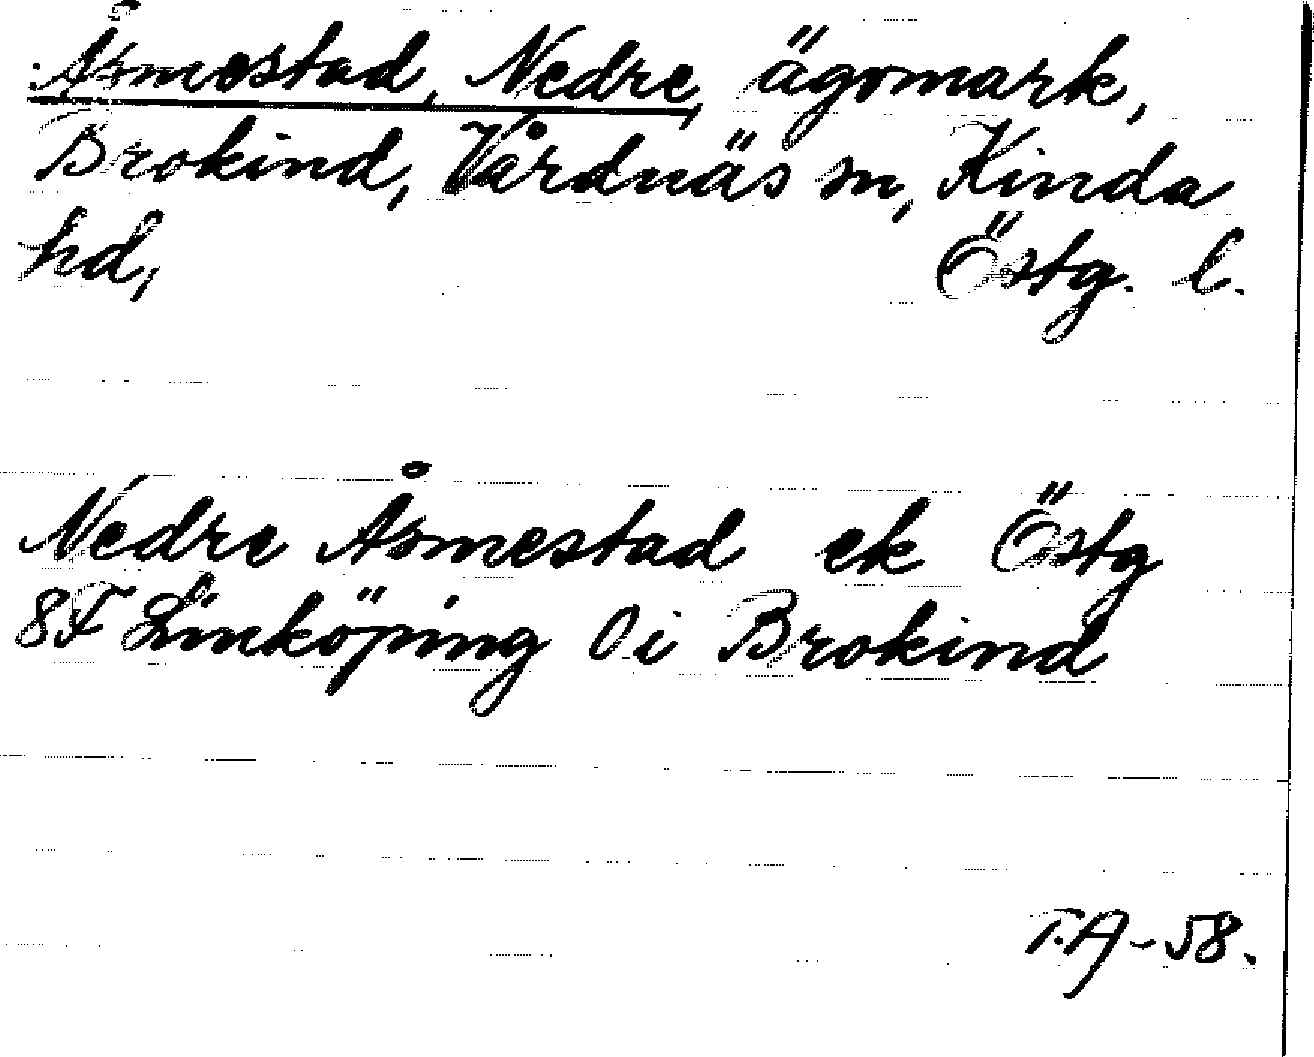 Åsmestad, Nedre, ägomark,
Brokind, Vårdnäs sn, Kinda
hd, Östg. l.
Nedre Åsmestad ek Östg
8F Linköping Oi Brokind
T.A-58.